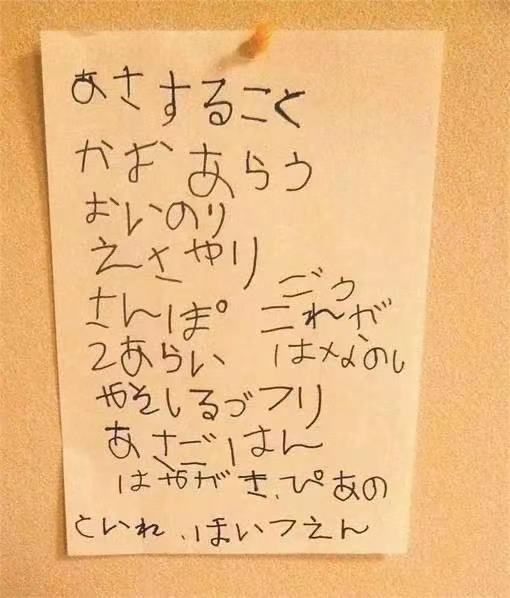 あさすること
かお あらう
おいのり
えさやり
ごう
さんぽ これが
2あらい
やそしるづフリ
あさごはん
はやがき、ぴあの
といれ、ほいつえん